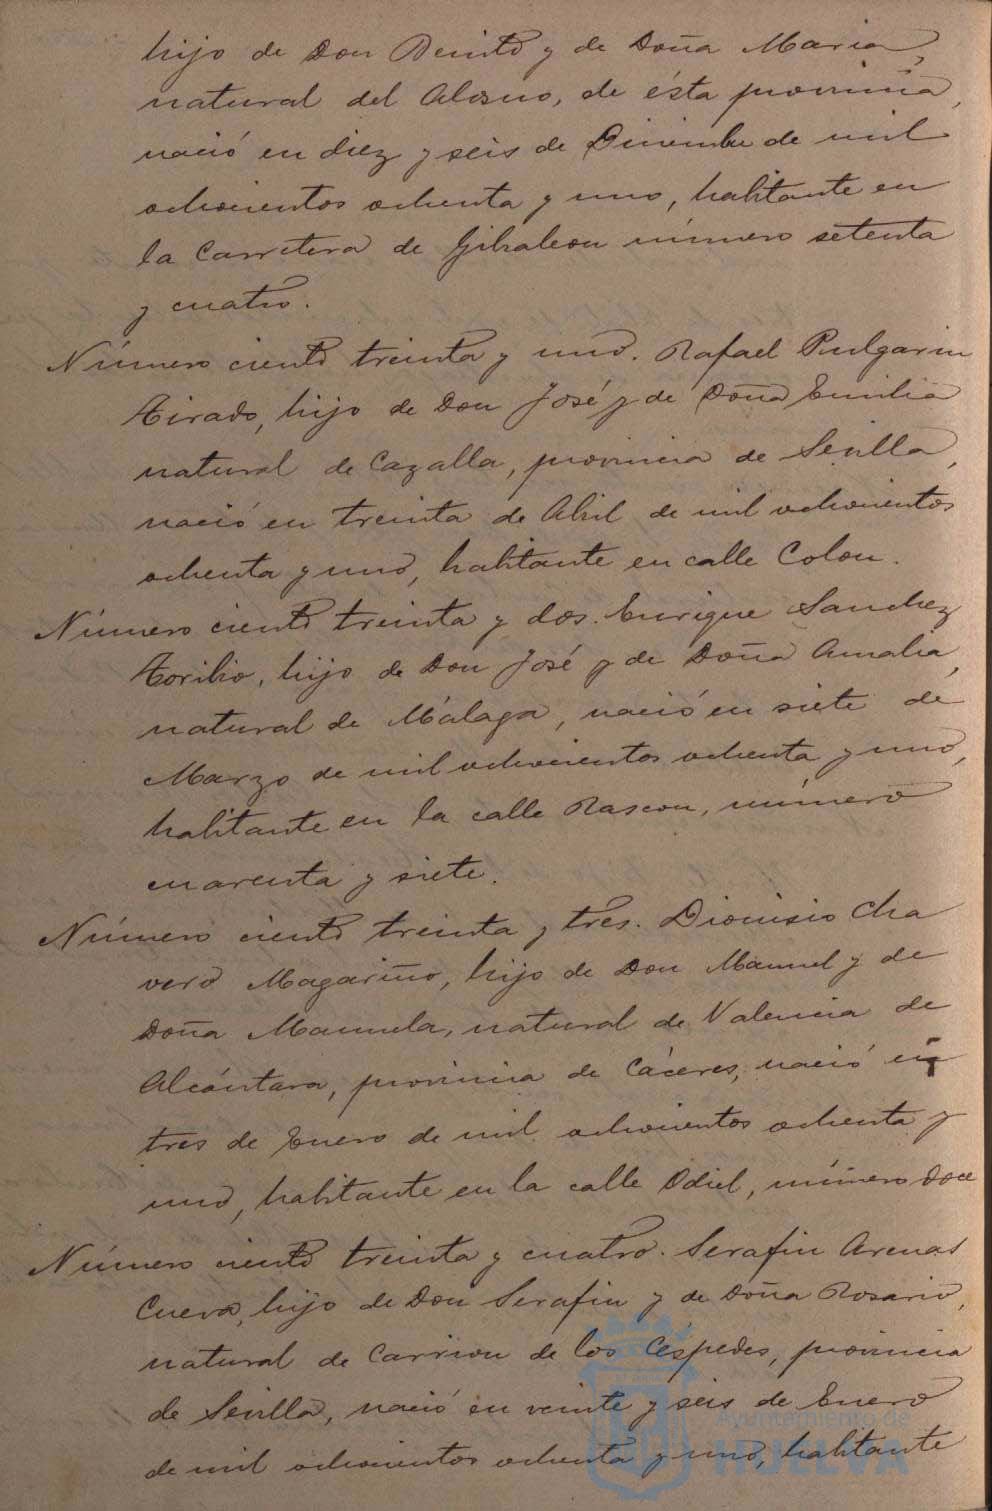 hijo de Don Benito y de Doña Maria,
natural del Alosno, de ésta provincia,
nació en diez y seis de Diciembre de mil
ochocientos ochenta y uno, habitante en
la Carretera de Gibraleon número setenta
y cuatro.
Número ciento treinta y uno. Rafael Pulgarin
Tirado, hijo de Don José y de Doña Emilia
natural de Cazalla, provincia de Sevilla,
nació en treinta de Abril de mil ochocientos
ochenta y uno, habitante en calle Colon.
Número ciento treinta y dos. Enrique Sanchez
Toribio, hijo de Don José y de Doña Amalia,
natural de Málaga, nació en siete de
Marzo de mil ochocientos ochenta y uno,
habitante en la calle Rascon, número
cuarenta y siete.
Número ciento treinta y tres. Dionisio Cha
vero Magariño, hijo de Don Manuel y de
Doña Manuela, natural de Valencia de
Alcántara, provincia de Cáceres, nació en
tres de Enero de mil ochocientos ochenta y
uno, habitante en la calle Odiel, número doce
Número ciento treinta y cuatro. Serafin Arenas
Cueva, hijo de Don Serafin y de Doña Rosario,
natural de Carrion de los Céspedes, provincia
de Sevilla, nació en veinte y seis de Enero
de mil ochocientos ochenta y uno, habitante
Ayuntamiento de
HUELVA